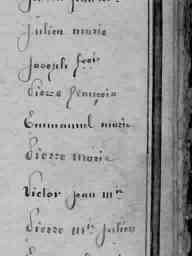 Julien marie
Joseph fçois
Pierre françois
Emmanuel marie
Pierre marie
Victor jean m^in
Pierre m^ie julien